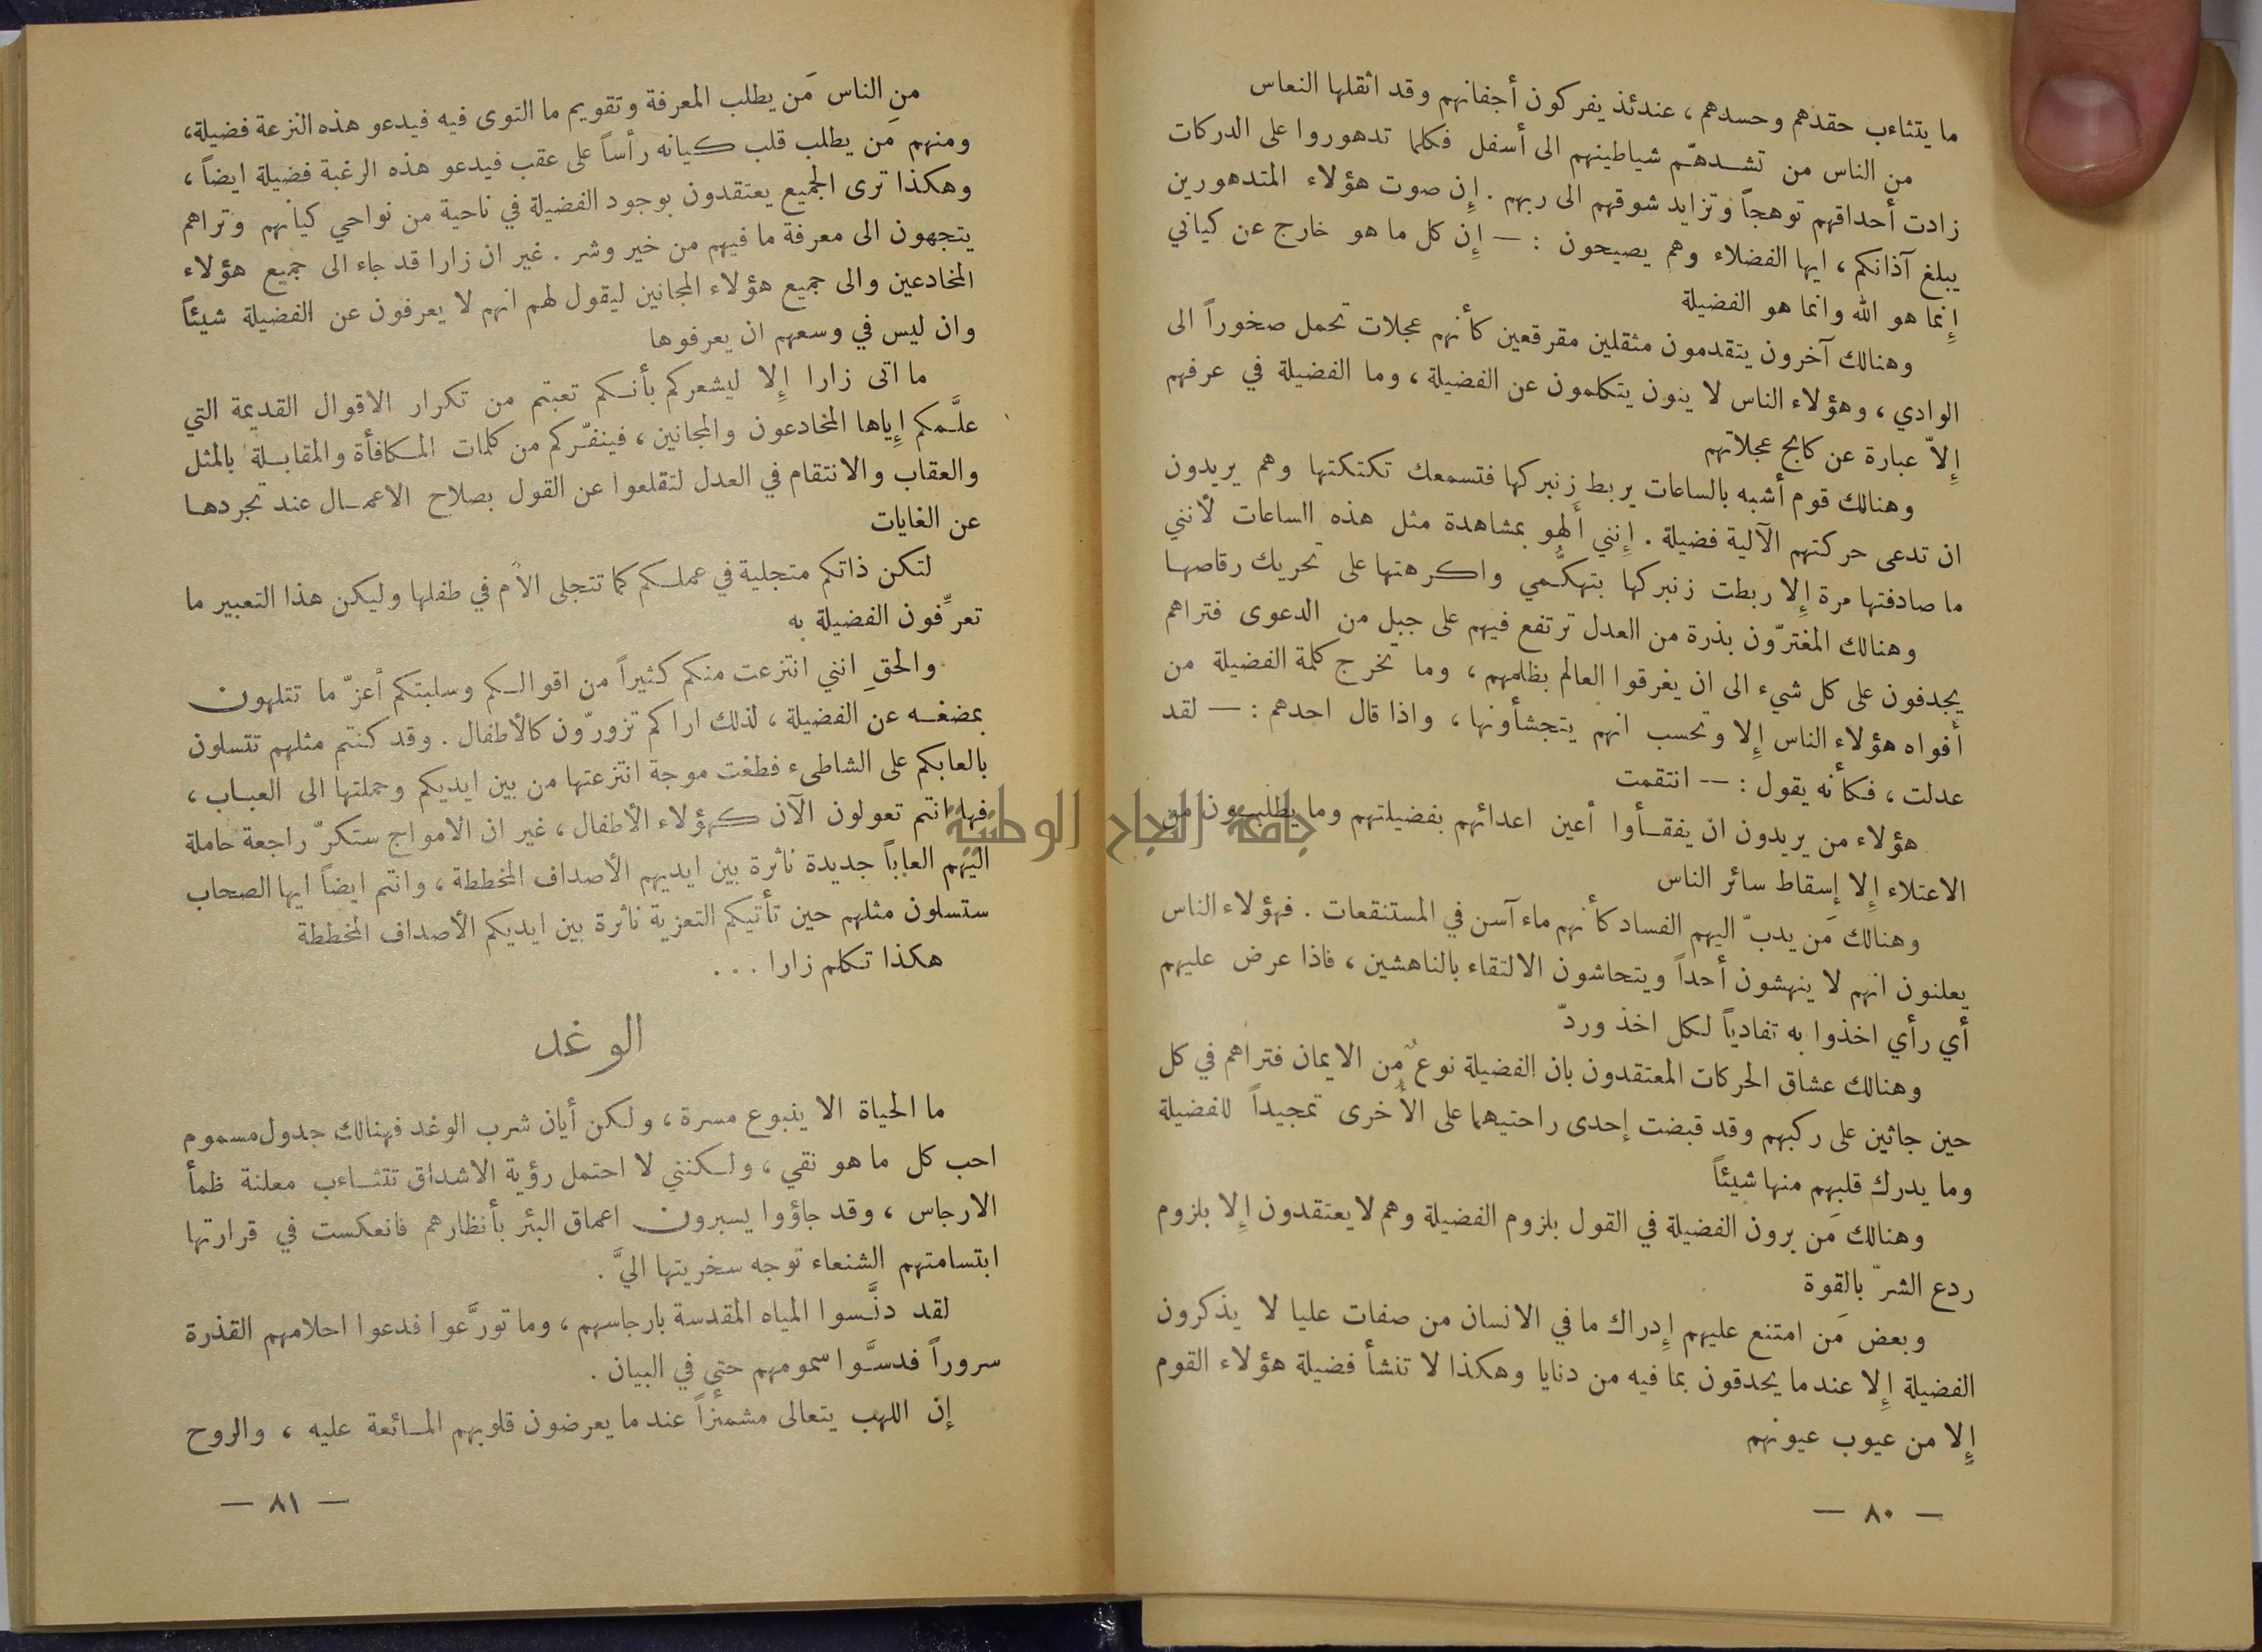 ما يتثاءب حقدهم وحسدهم ، عندئذ يفركون أجفانهم وقد اثقلها النعاس
من الناس من تشدهّم شياطينهم الى أسفل فكلما تدهوروا على الدركات
زادت أحداقهم توهجاً وتزايد شوقهم الى ربهم . إِن صوت هؤلاء المتدهورين
يبلغ آذانكم ، ايها الفضلاء وهم يصيحون : — إِن كل ما هو خارج عن كياني
إِنما هو الله وانما هو الفضيلة
وهنالك آخرون يتقدمون مثقلين مقرقعين كأنهم عجلات تحمل صخوراً الى
الوادي ، وهؤلاء الناس لا ينون يتكلمون عن الفضيلة ، وما الفضيلة في عرفهم
إِلاّ عبارة عن كابح عجلاتهم
وهنالك قوم أشبه بالساعات يربط زنبركها فتسمعك تكتكتها وهم يريدون
ان تدعى حركتهم الآلية فضيلة . إِنني أَلهو بمشاهدة مثل هذه الساعات لأنني
ما صادفتها مرة إِلا ربطت زنبركها بتهكُّمي واكرهتها على تحريك رقاصها
وهنالك المغترّون بذرة من العدل ترتفع فيهم على جبل من الدعوى فتراهم
يجدفون على كل شيء الى ان يغرقوا العالم بظلمهم ، وما تخرج كلمة الفضيلة من
أفواه هؤلاء الناس إِلا وتحسب انهم يتجشأونها ، واذا قال احدهم : — لقد
عدلت ، فكأنه يقول : — انتقمت
هؤلاء من يريدون ان يفقأوا أعين اعدائهم بفضيلتهم وما يطلبون من
الاعتلاء إِلا إسقاط سائر الناس
وهنالك مَن يدبّ اليهم الفساد كأنهم ماء آسن في المستنقعات . فهؤلاء الناس
يعلنون انهم لا ينهشون أحداً ويتحاشون الالتقاء بالناهشين ، فاذا عرض عليهم
أي رأي اخذوا به تفادياً لكل اخذ وردّ
وهنالك عشاق الحركات المعتقدون بان الفضيلة نوعٌ من الايمان فتراهم في كل
حين جاثين على ركبهم وقد قبضت إحدى راحتيهما على الأخرى تمجيداً للفضيلة
وما يدرك قلبهم منها شيئاً
وهنالك مَن يرون الفضيلة في القول بلزوم الفضيلة وهم لا يعتقدون إِلا بلزوم
ردع الشرّ بالقوة
وبعض مَن امتنع عليهم إِدراك ما في الانسان من صفات عليا لا يذكرون
الفضيلة إِلا عندما يحدقون بما فيه من دنايا وهكذا لا تنشأ فضيلة هؤلاء القوم
إِلا من عيوب عيونهم
— ٨٠ —
من الناس مَن يطلب المعرفة وتقويم ما التوى فيه فيدعو هذه النزعة فضيلة،
ومنهم مَن يطلب قلب كيانه رأساً على عقب فيدعو هذه الرغبة فضيلة ايضاً ،
وهكذا ترى الجميع يعتقدون بوجود الفضيلة في ناحية من نواحي كيانهم وتراهم
يتجهون الى معرفة ما فيهم من خير وشر . غير ان زارا قد جاء الى جميع هؤلاء
المخادعين والى جميع هؤلاء المجانين ليقول لهم انهم لا يعرفون عن الفضيلة شيئاً
وان ليس في وسعهم ان يعرفوها
ما اتى زارا إِلا ليشعركم بأنكم تعبتم من تكرار الاقوال القديمة التي
علَّمكم إِياها المخادعون والمجانين ، فينفّركم من كلمات المكافأة والمقابلة بالمثل
والعقاب والانتقام في العدل لتقلعوا عن القول بصلاح الاعمال عند تجردها
عن الغايات
لتكن ذاتكم متجلية في عملكم كما تتجلى الأم في طفلها وليكن هذا التعبير ما
تعرِّفون الفضيلة به
والحقِ انني انتزعت منكم كثيراً من اقوالكم وسلبتكم أعزّ ما تتلهون
بمضغه عن الفضيلة ، لذلك اراكم تزورّون كالأطفال . وقد كنتم مثلهم تتسلون
بالعابكم على الشاطىء فطغت موجة انتزعتها من بين ايديكم وحملتها الى العباب ،
فها انتم تعولون الآن كهؤلاء الأطفال ، غير ان الامواج ستكرّ راجعة حاملة
اليهم العاباً جديدة ناثرة بين ايديهم الأصداف المخططة ، وانتم ايضاً ايها الصحاب
ستسلون مثلهم حين تأتيكم التعزية ناثرة بين ايديكم الأصداف المخططة
هكذا تكلم زارا . . .
الوغد
ما الحياة الا ينبوع مسرة ، ولكن أيان شرب الوغد فهنالك جدول مسموم
احب كل ما هو نقي ، ولكنني لا احتمل رؤية الاشداق تتثاءب معلنة ظمأ
الارجاس ، وقد جاؤوا يسبرون اعماق البئر بأنظارهم فانعكست في قرارتها
ابتسامتهم الشنعاء توجه سخريتها اليَّ .
لقد دنَّسوا المياه المقدسة بارجاسهم ، وما تورَّعوا فدعوا احلامهم القذرة
سروراً فدسَّوا سمومهم حتى في البيان .
إن اللهب يتعالى مشمئزاً عندما يعرضون قلوبهم المائعة عليه ، والروح
— ٨١ —
جامعة النجاح الوطنية